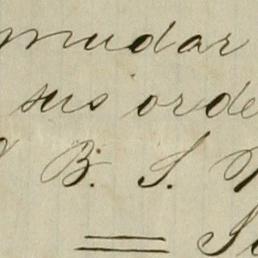 mudar
sus orde
B. S.